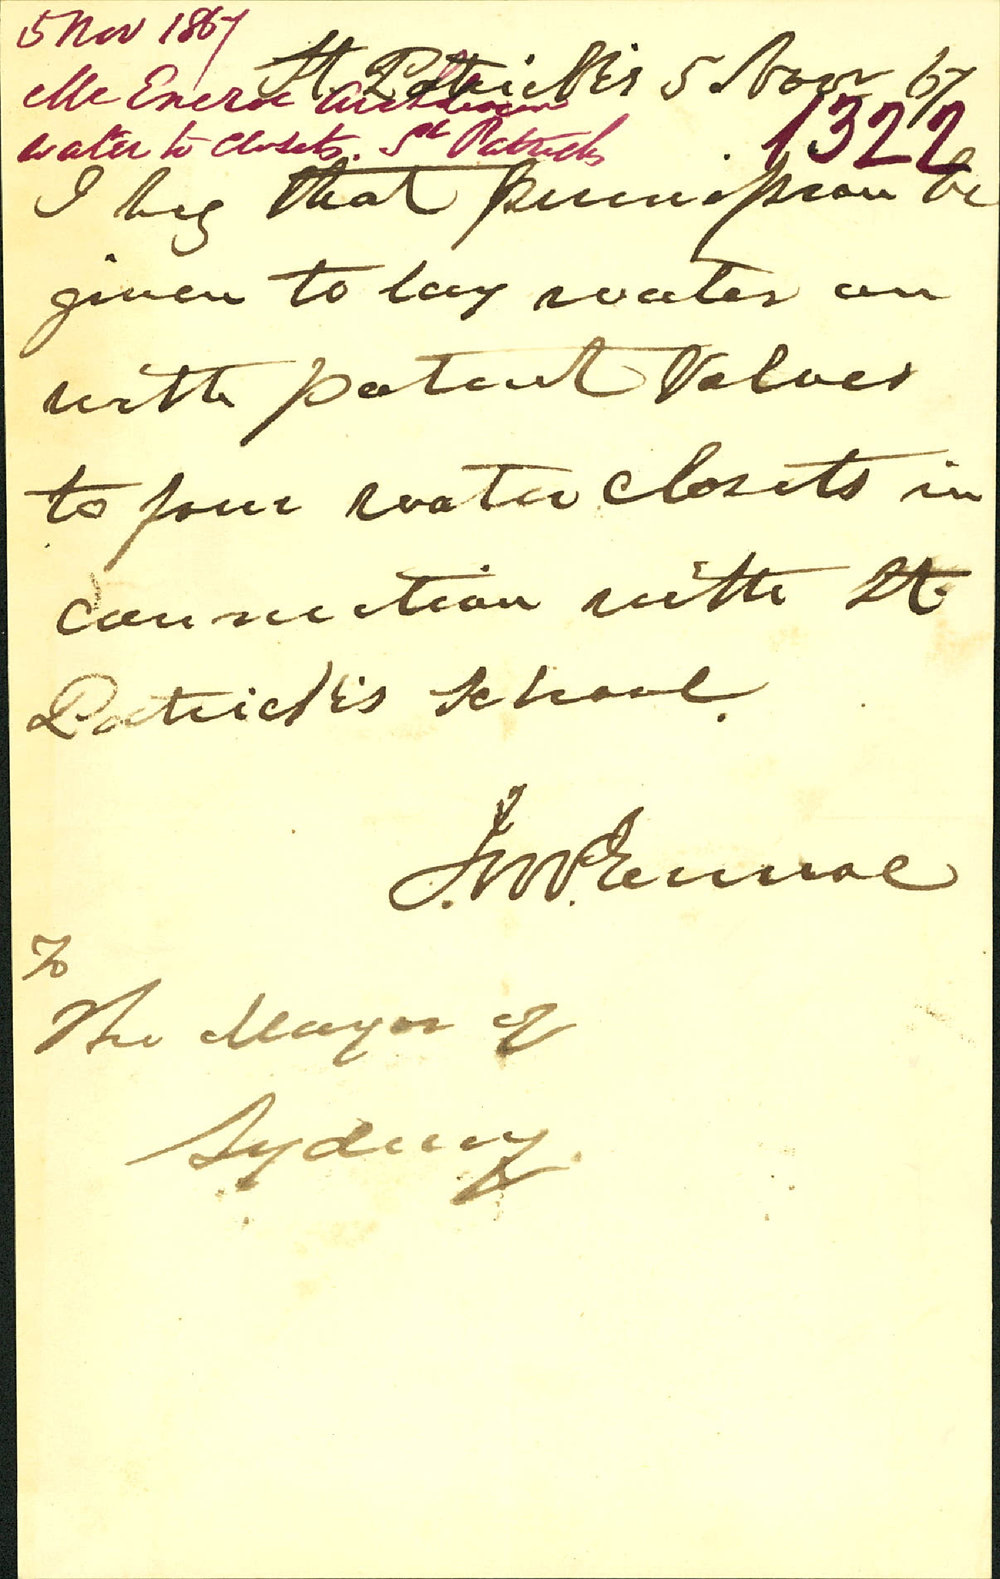 5 Nov 1867
McEncroe Archdeacon
water to closets. St Patricks
1322
St. Patrick's 5 Novr 67
I beg that permission be
given to lay water on
with patent Valves
to four water closets in
connection with St
Patrick's School.
J. McEncroe
To
The Mayor of
Sydney